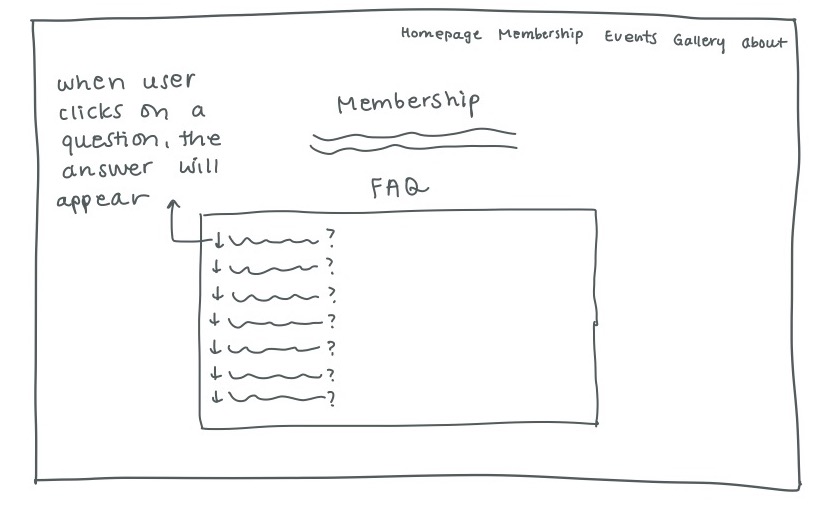 Homepage Membership Events Gallery about
when user
clicks on a
question, the
answer will
appear
Membership
FAQ
?
?
?
?
?
?
?